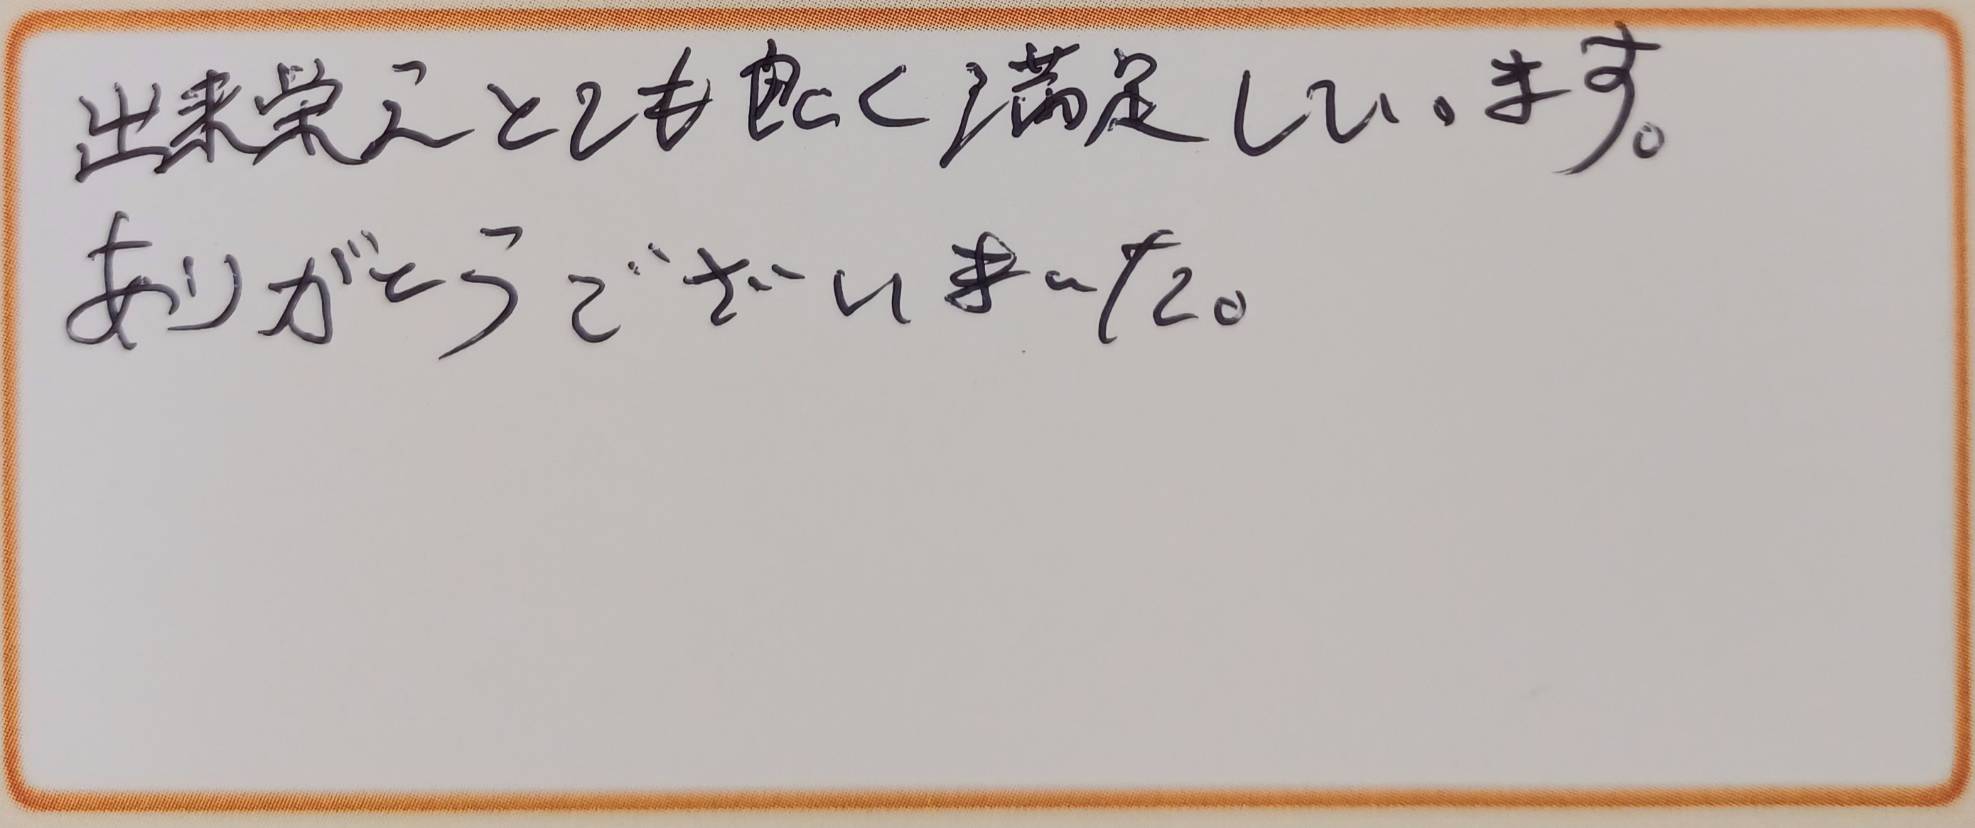 出来栄えとても良く満足しています。
ありがとうございました。